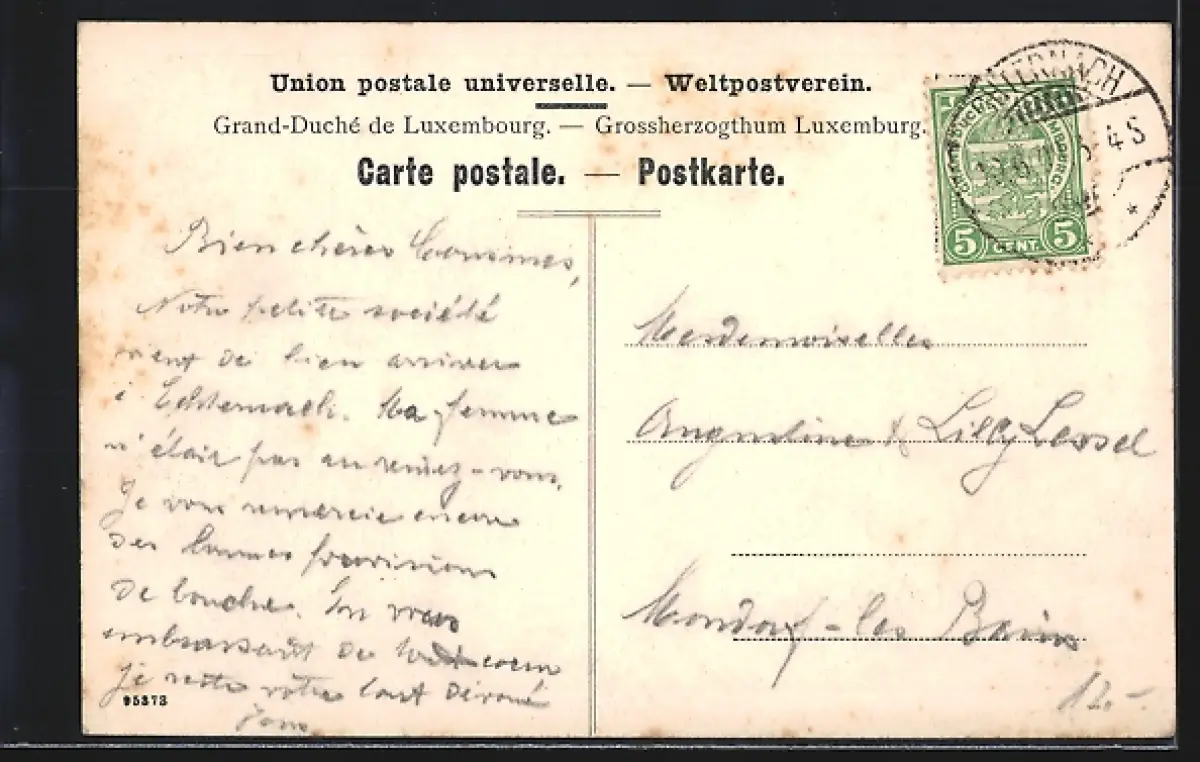 Union postale universelle. — Weltpostverein.
Grand-Duché de Luxembourg. — Grossherzogthum Luxemburg.
Carte postale. — Postkarte.
ECHTERNACH
4-5
5 CENT. 5
Bien chères Cousines,
Notre petite société
vient de bien arriver
à Echternach. Ma femme
n'était pas au rendez-vous.
Je vous remercie encore
des bonnes provisions
de bouche. En vous
embrassant de tout coeur
je reste votre tout dévoué
Mesdemoiselles
Angeline & Lilly
Mondorf-les Bains
95373
12.-